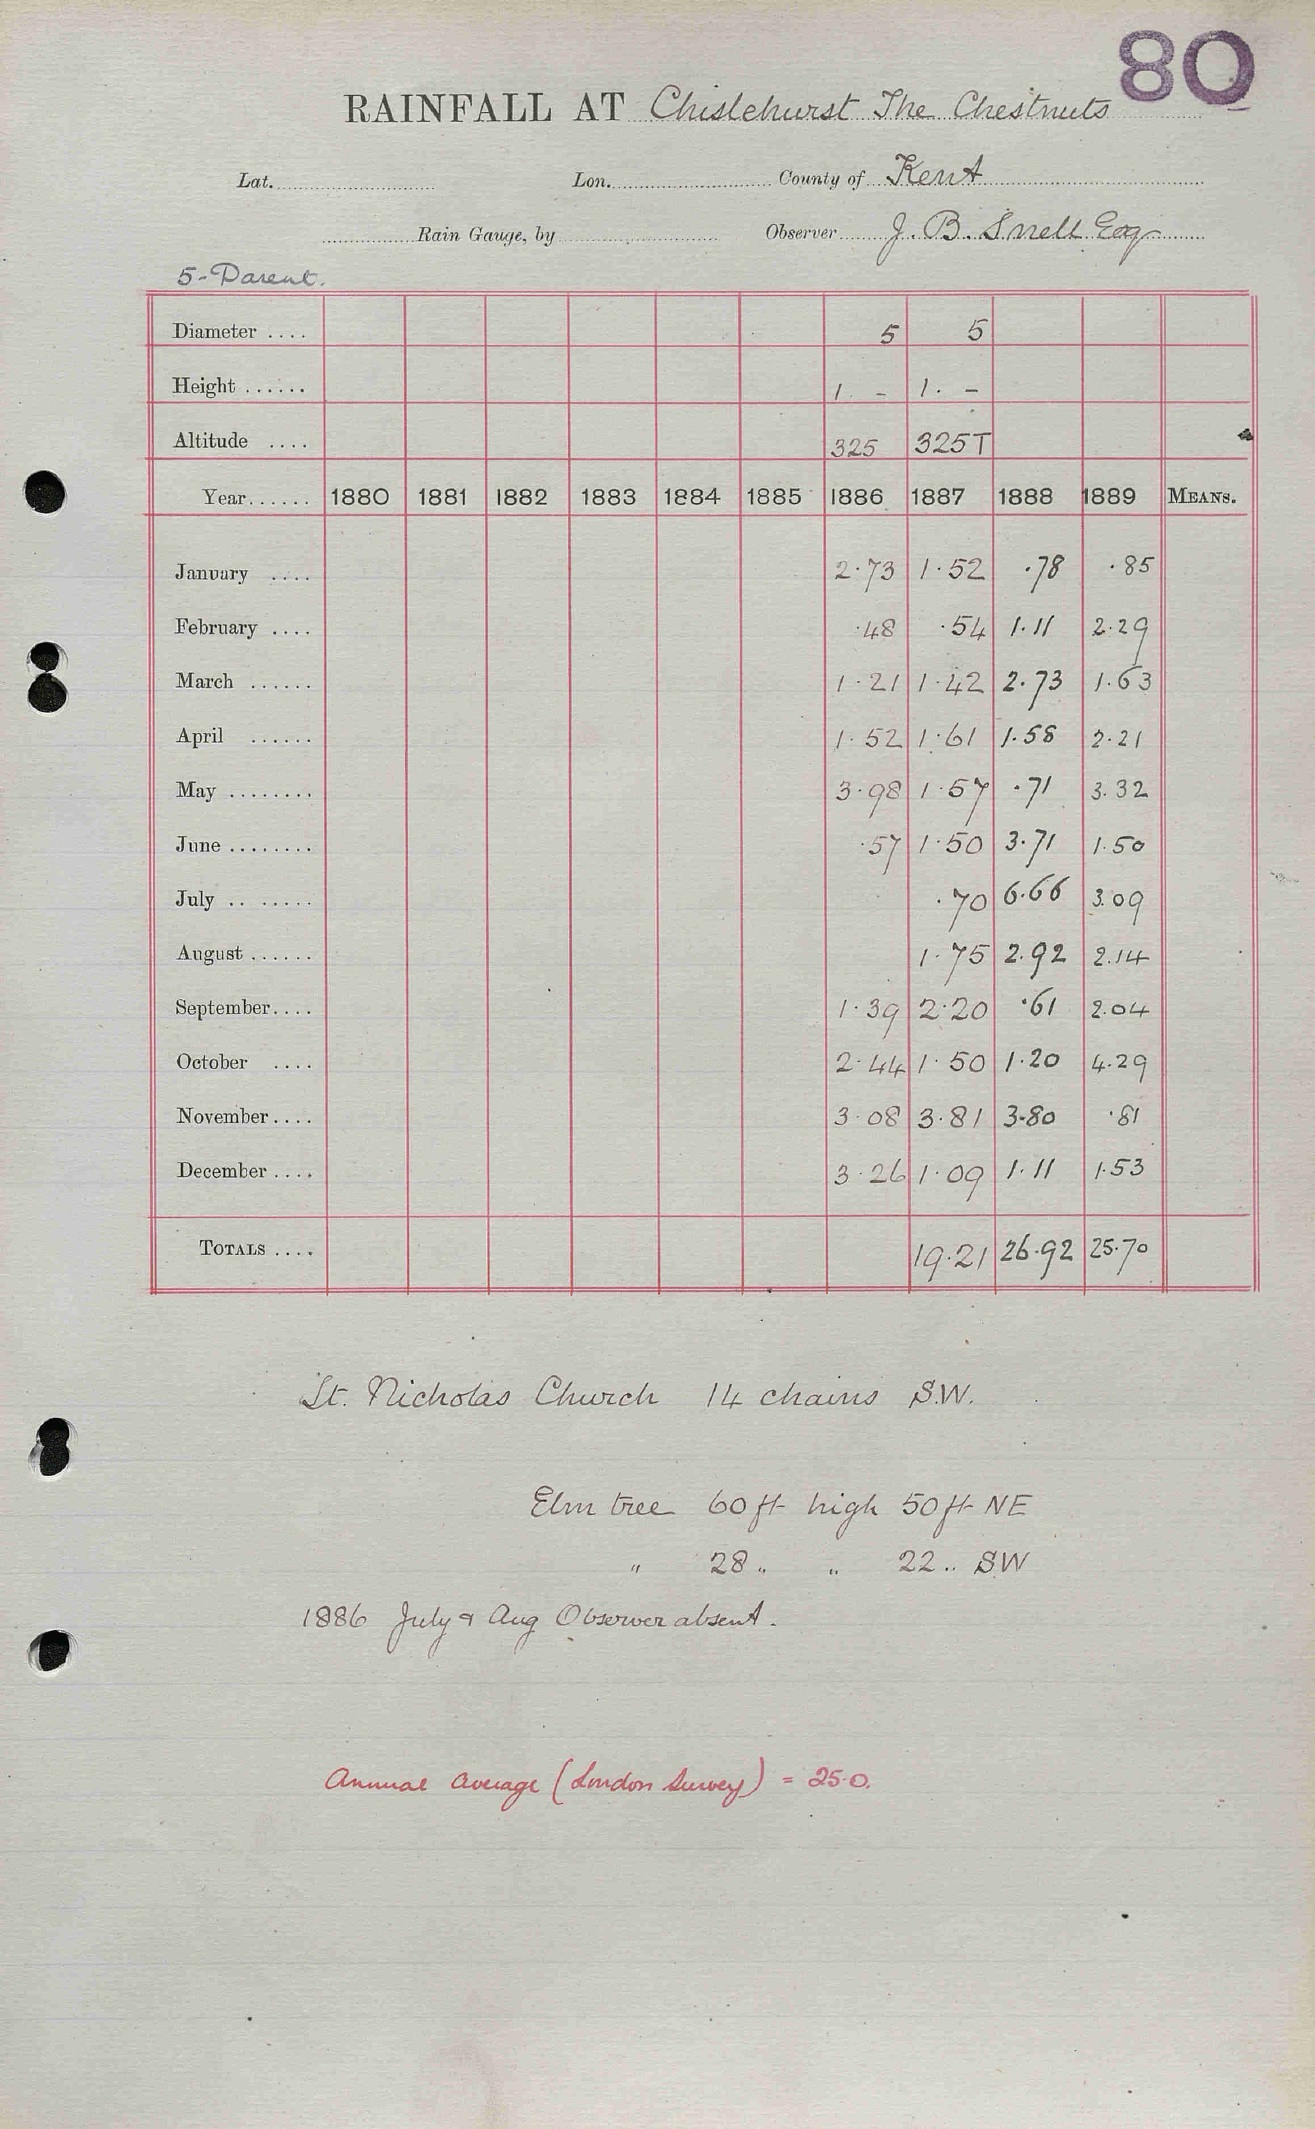 80
RAINFALL AT Chislehurst The Chestnuts
Lat. Lon. County of Kent
Rain Gauge, by Observer J. B. Snell Esq
5-Parent.
Diameter .... 5 5
Height ...... 1. - 1. -
Altitude .... 325 325T
Year...... 1880 1881 1882 1883 1884 1885 1886 1887 1888 1889 MEANS.
January .... 2.73 1.52 .78 .85
February .... .48 .54 1.11 2.29
March ...... 1.21 1.42 2.73 1.63
April ...... 1.52 1.61 1.58 2.21
May ........ 3.98 1.57 .71 3.32
June ........ .57 1.50 3.71 1.50
July .. ...... .70 6.66 3.09
August ...... 1.75 2.92 2.14
September.... 1.39 2.20 .61 2.04
October .... 2.44 1.50 1.20 4.29
November.... 3.08 3.81 3.80 .81
December .... 3.26 1.09 1.11 1.53
TOTALS .... 19.21 26.92 25.70
St. Nicholas Church 14 chains S.W.
Elm tree 60 ft high 50 ft NE
" 28 " " 22 " SW
1886 July & Aug Observer absent.
Annual average (London Survey) = 25.0.